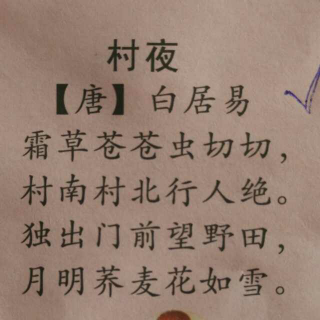 村夜
【唐】 白居易
霜草苍苍虫切切，
村南村北行人绝。
独出门前望野田，
月明荞麦花如雪。